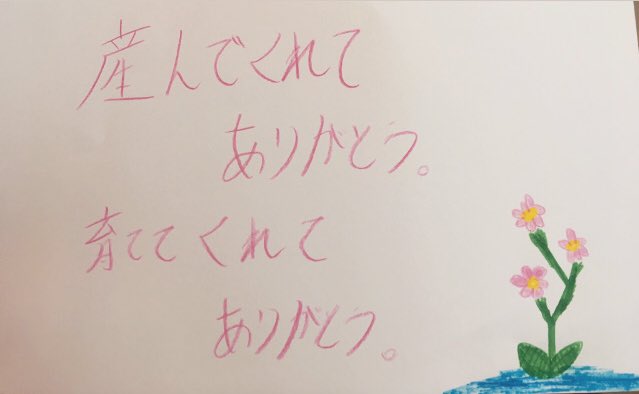 産んでくれて
ありがとう。
育ててくれて
ありがとう。